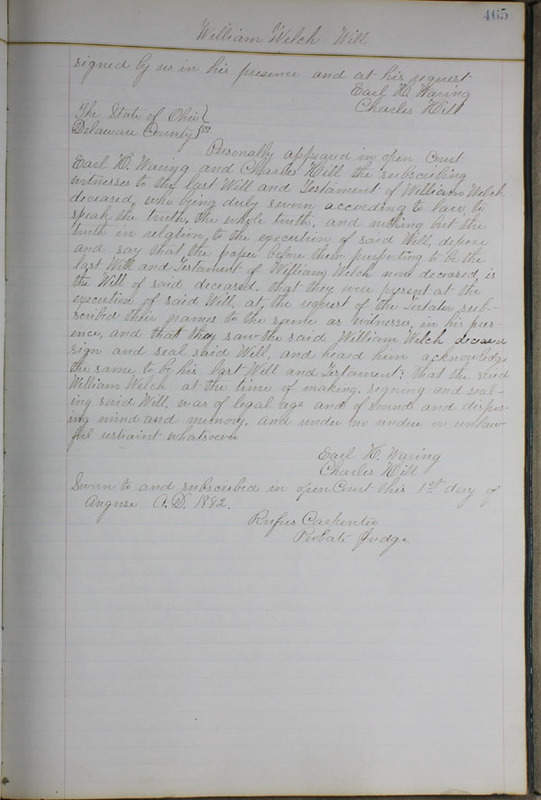 465
William Welch Will
signed by us in his presence and at his request
Earl H. Waring
Charles Hill
The State of Ohio }
Delaware County } ss
Personally appeared in open Court
Earl H. Waring and Charles Hill the subscribing
witnesses to the last Will and Testament of William Welch
deceased, who being duly sworn according to law, to
speak the truth, the whole truth, and nothing but the
truth in relation, to the execution of said Will, depose
and say that the paper before them purporting to be the
last Will and Testament of William Welch now deceased, is
the Will of said deceased, that they were present at the
execution of said Will, at, the request of the Testator sub-
scribed their names to the same as witnesses, in his pres-
ence, and that they saw the said William Welch deceased
sign and seal said Will, and heard him acknowledge
the same to be his last Will and Testament: that the said
William Welch at the time of making, signing and seal-
ing said Will, was of legal age and of sound and dispos-
ing mind and memory, and under no undue or unlaw-
ful restraint whatsoever
Earl H. Waring
Charles Hill
Sworn to and subscribed in open Court this 1st day of
August A.D. 1882.
Rufus Carpenter
Probate Judge.